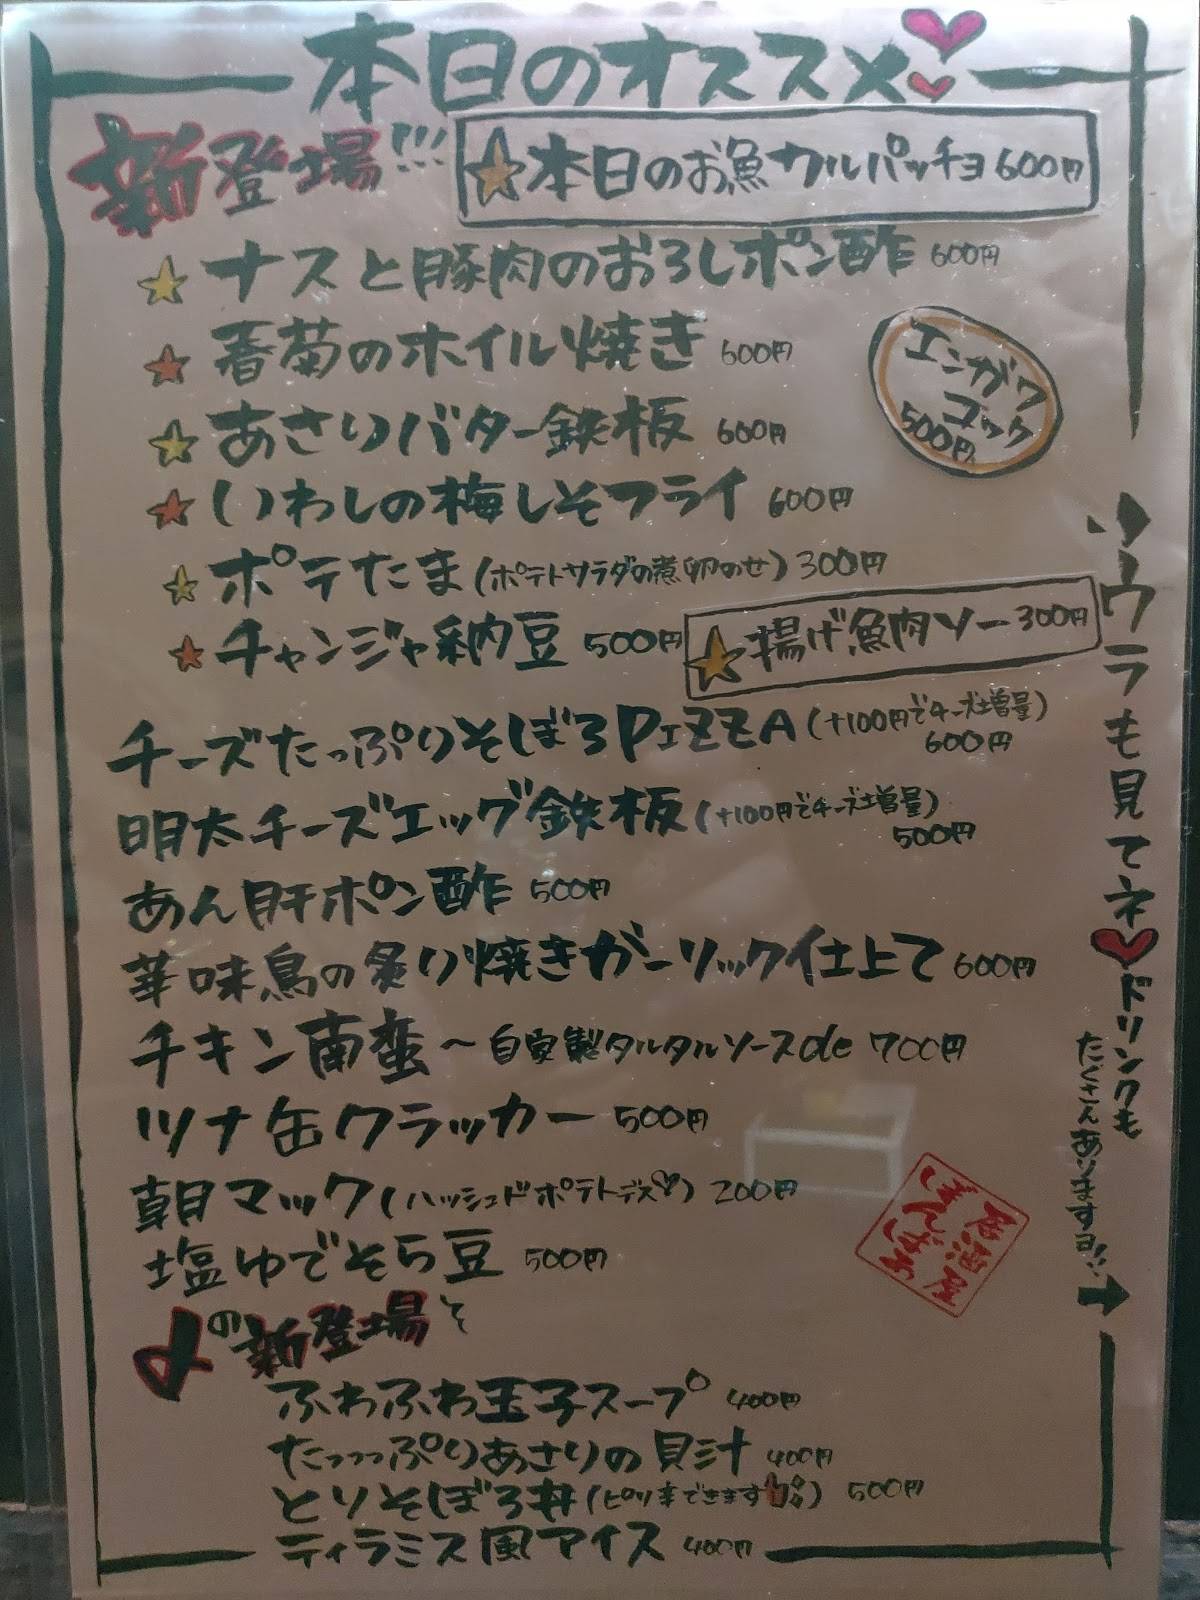 本日のオススメ
新登場!!!
★本日のお魚カルパッチョ 600円
★ナスと豚肉のおろしポン酢 600円
★春菊のホイル焼き 600円
★あさりバター鉄板 600円
エンガワ
ユッケ
500円
★いわしの梅しそフライ 600円
★ポテたま(ポテトサラダの煮卵のせ) 300円
★チャンジャ納豆 500円
★揚げ魚肉ソー 300円
チーズたっぷりそぼろPIZZA(+100円でチーズ増量)
600円
明太チーズエッグ鉄板(+100円でチーズ増量)
500円
あん肝ポン酢 500円
華味鳥の炙り焼きガーリック仕上て 600円
チキン南蛮~自家製タルタルソースde 700円
ツナ缶クラッカー 500円
朝マック(ハッシュドポテトデス♡) 200円
塩ゆでそら豆 500円
〆の新登場
ふわふわ玉子スープ 400円
たっっっぷりあさりの貝汁 400円
とりそぼろ丼(ピリ辛できます) 500円
ティラミス風アイス 400円
居酒屋
ぼんばち
ウラも見てネ♥ドリンクも
たくさんありますヨ!!